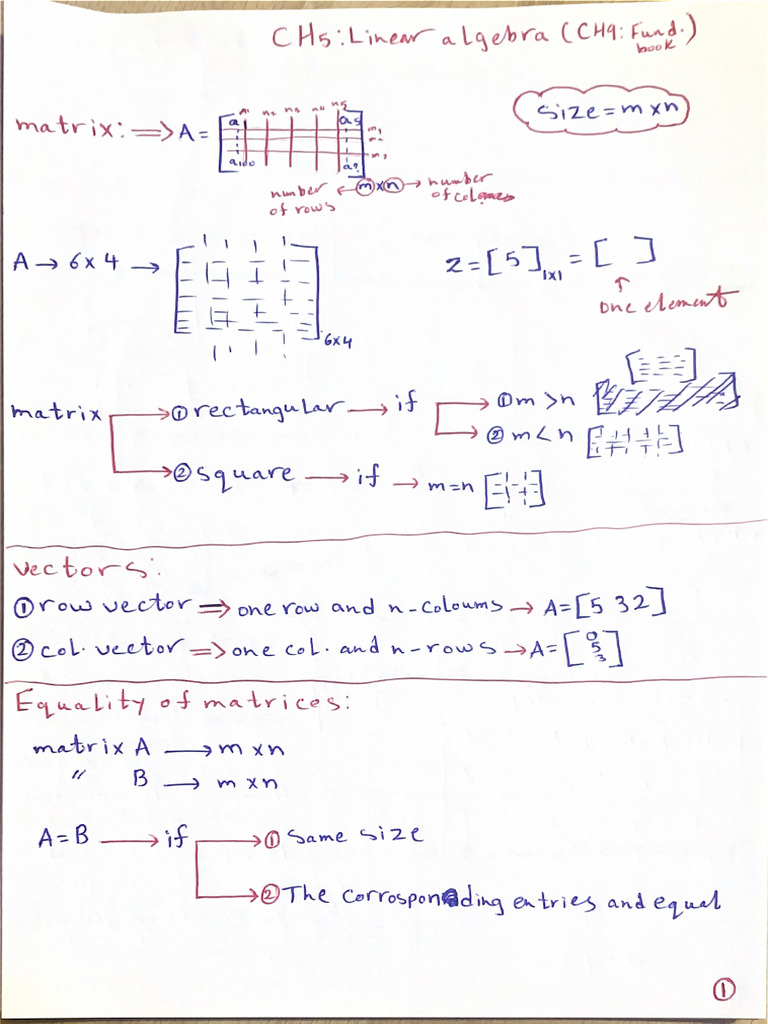 CH5: Linear algebra (CH9: Fund. book)
size = m x n
matrix: ⇒ A = [a1 a5 a100 a?]
n1 n2 n3 n4 n5
m1
number of rows ← m x n → number of coloms
A → 6x4 → [ ] 6x4
z = [5] 1x1 = [ ]
↑
one element
matrix → ① rectangular → if → ① m > n
→ ② m < n
→ ② square → if → m = n
vectors:
① row vector ⇒ one row and n-coloums → A = [5 3 2]
② col. vector ⇒ one col. and n-rows → A = [0 5 3]
Equality of matrices:
matrix A → m x n
〃 B → m x n
A = B → if → ① Same size
→ ② The corrosponding entries and equal
①